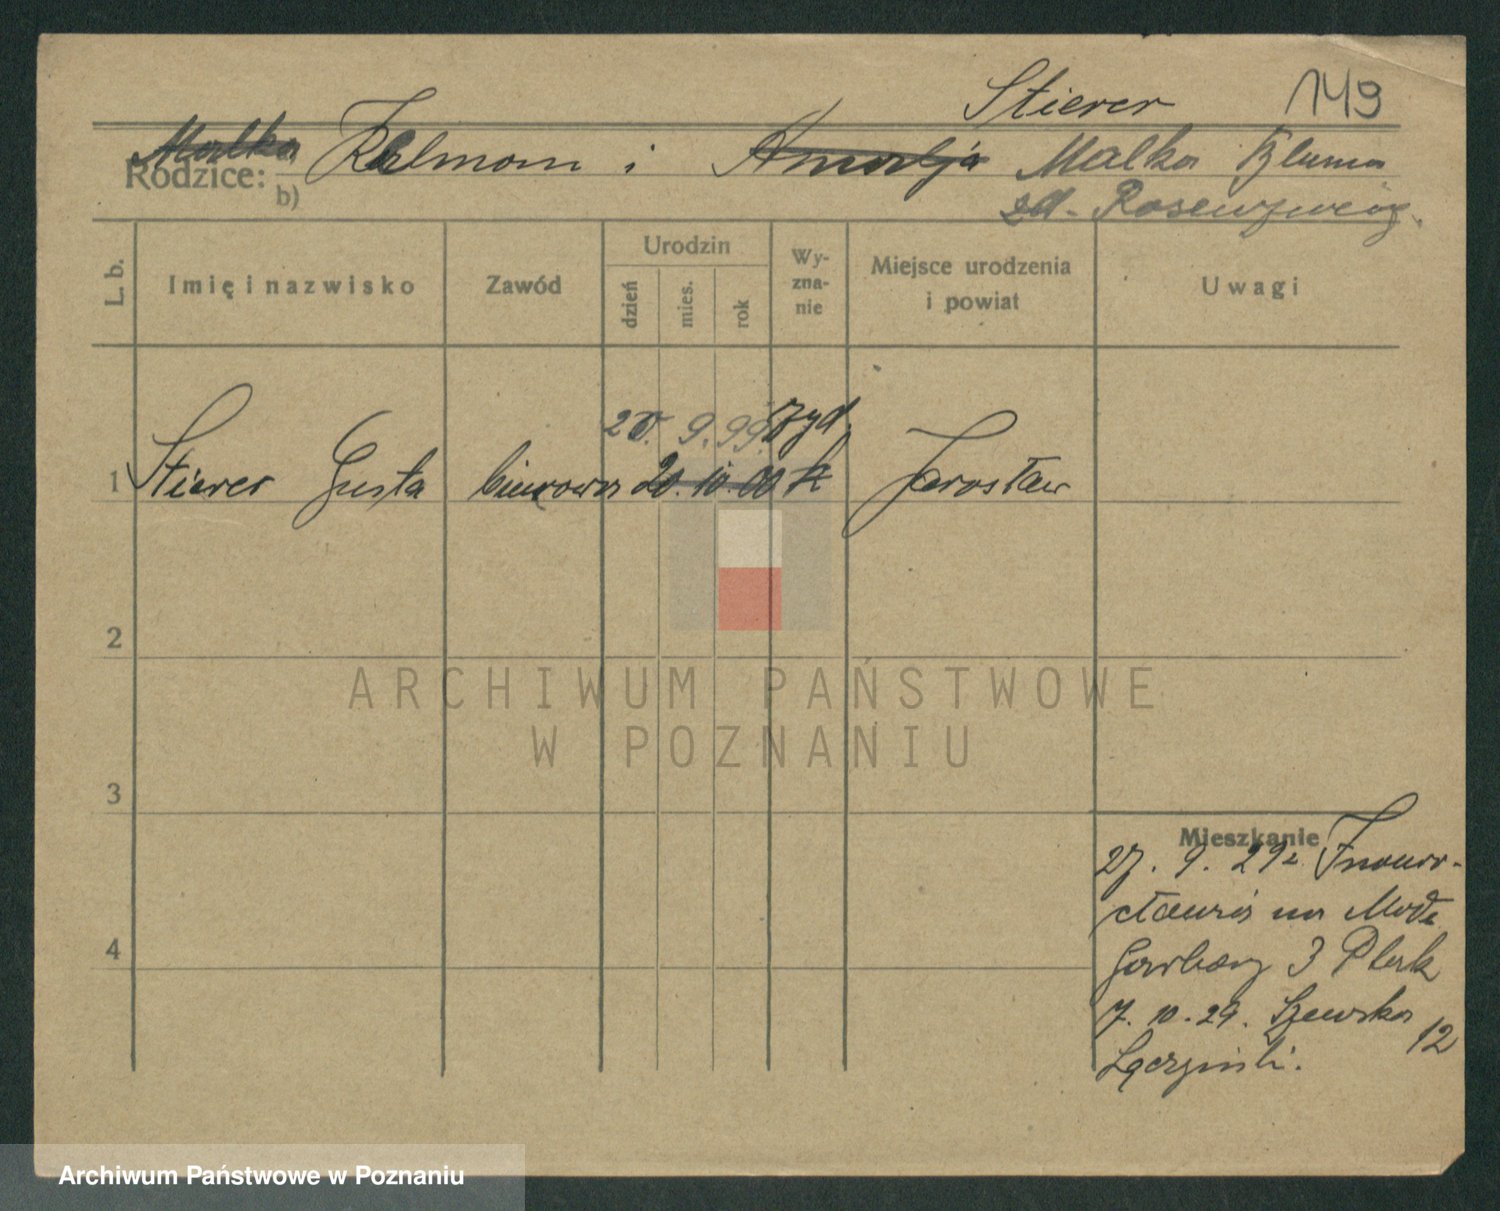 Stierer 149
Malka Kalman i Amalja Malka Bluma
Rodzice:
b)
zd. Rosenzweig
L. b.
Imię i nazwisko
Zawód
Urodzin
dzień
mies.
rok
Wy-
zna-
nie
Miejsce urodzenia
i powiat
Uwagi
20. 9. 99 żyd.
1 Stierer Gusta biurowa 20. 10. 00 k Jarosław
2
3
4
Mieszkanie
27. 9. 29 z Inowr-
cławia na Małe
Garbary 3
7. 10. 29. Szewska 12
ARCHIWUM PAŃSTWOWE
W POZNANIU
Archiwum Państwowe w Poznaniu